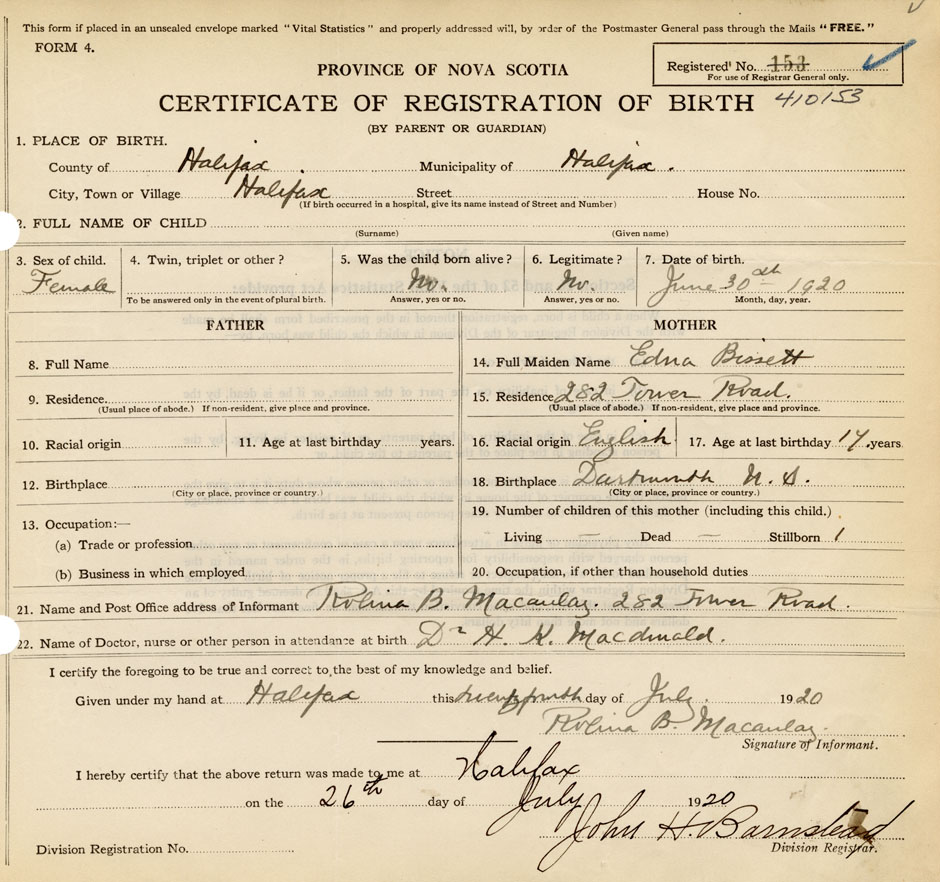 This form if placed in an unsealed envelope marked "Vital Statistics" and properly addressed will, by order of the Postmaster General pass through the Mails "FREE."
FORM 4.
Registered No. 153
For use of Registrar General only.
PROVINCE OF NOVA SCOTIA
CERTIFICATE OF REGISTRATION OF BIRTH 410153
(BY PARENT OR GUARDIAN)
1. PLACE OF BIRTH.
County of Halifax Municipality of Halifax.
City, Town or Village Halifax Street House No.
(If birth occurred in a hospital, give its name instead of Street and Number)
2. FULL NAME OF CHILD
(Surname) (Given name)
3. Sex of child. 4. Twin, triplet or other? 5. Was the child born alive? 6. Legitimate? 7. Date of birth.
Female No. No. June 30th 1920
To be answered only in the event of plural birth. Answer, yes or no. Answer, yes or no. Month, day, year.
FATHER MOTHER
8. Full Name 14. Full Maiden Name Edna Bissett
9. Residence. 15. Residence 282 Tower Road.
(Usual place of abode.) If non-resident, give place and province. (Usual place of abode.) If non-resident, give place and province.
10. Racial origin 11. Age at last birthday years. 16. Racial origin English 17. Age at last birthday 17, years.
12. Birthplace 18. Birthplace Dartmouth N. S.
(City or place, province or country.) (City or place, province or country.)
13. Occupation:— 19. Number of children of this mother (including this child.)
(a) Trade or profession Living — Dead — Stillborn 1
(b) Business in which employed 20. Occupation, if other than household duties
21. Name and Post Office address of Informant Rolina B. Macaulay. 282 Tower Road.
22. Name of Doctor, nurse or other person in attendance at birth Dr H. K. Macdonald.
I certify the foregoing to be true and correct to the best of my knowledge and belief.
Given under my hand at Halifax this day of July 1920
Rolina B. Macaulay.
Signature of Informant.
I hereby certify that the above return was made to me at Halifax
on the 26th day of July 1920
John H. Barnstead
Division Registration No. Division Registrar.